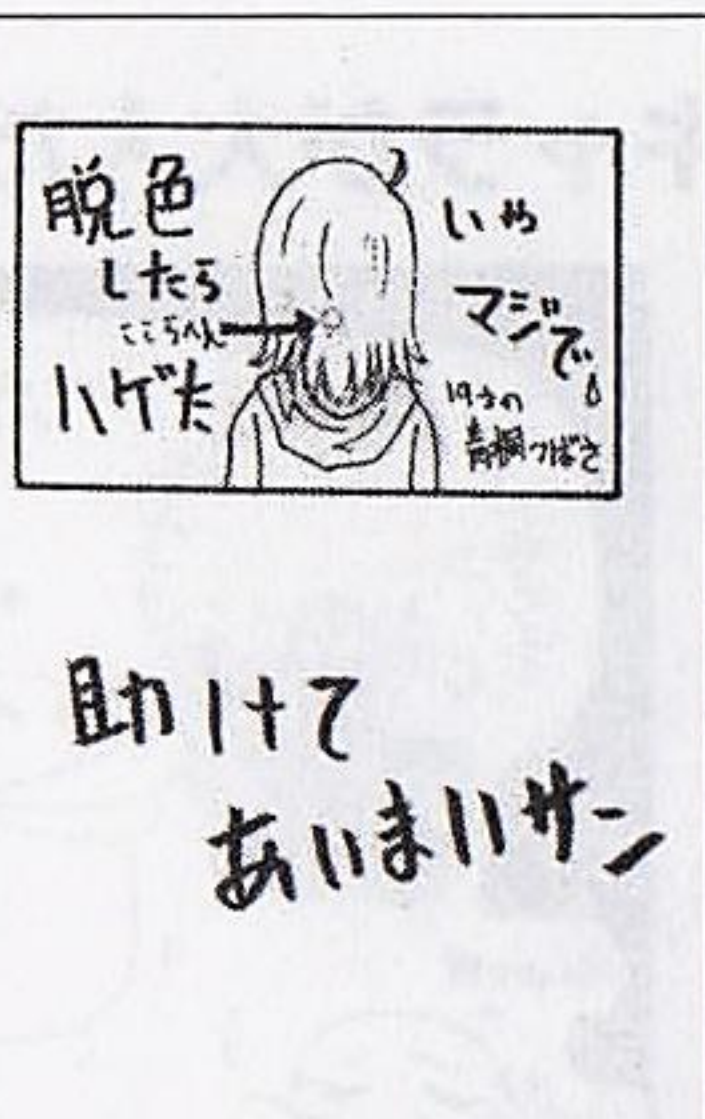 脱色
したら
ここらへん
ハゲた
いや
マジで。
19才の
青桐つばさ
助けて
あいまいサン